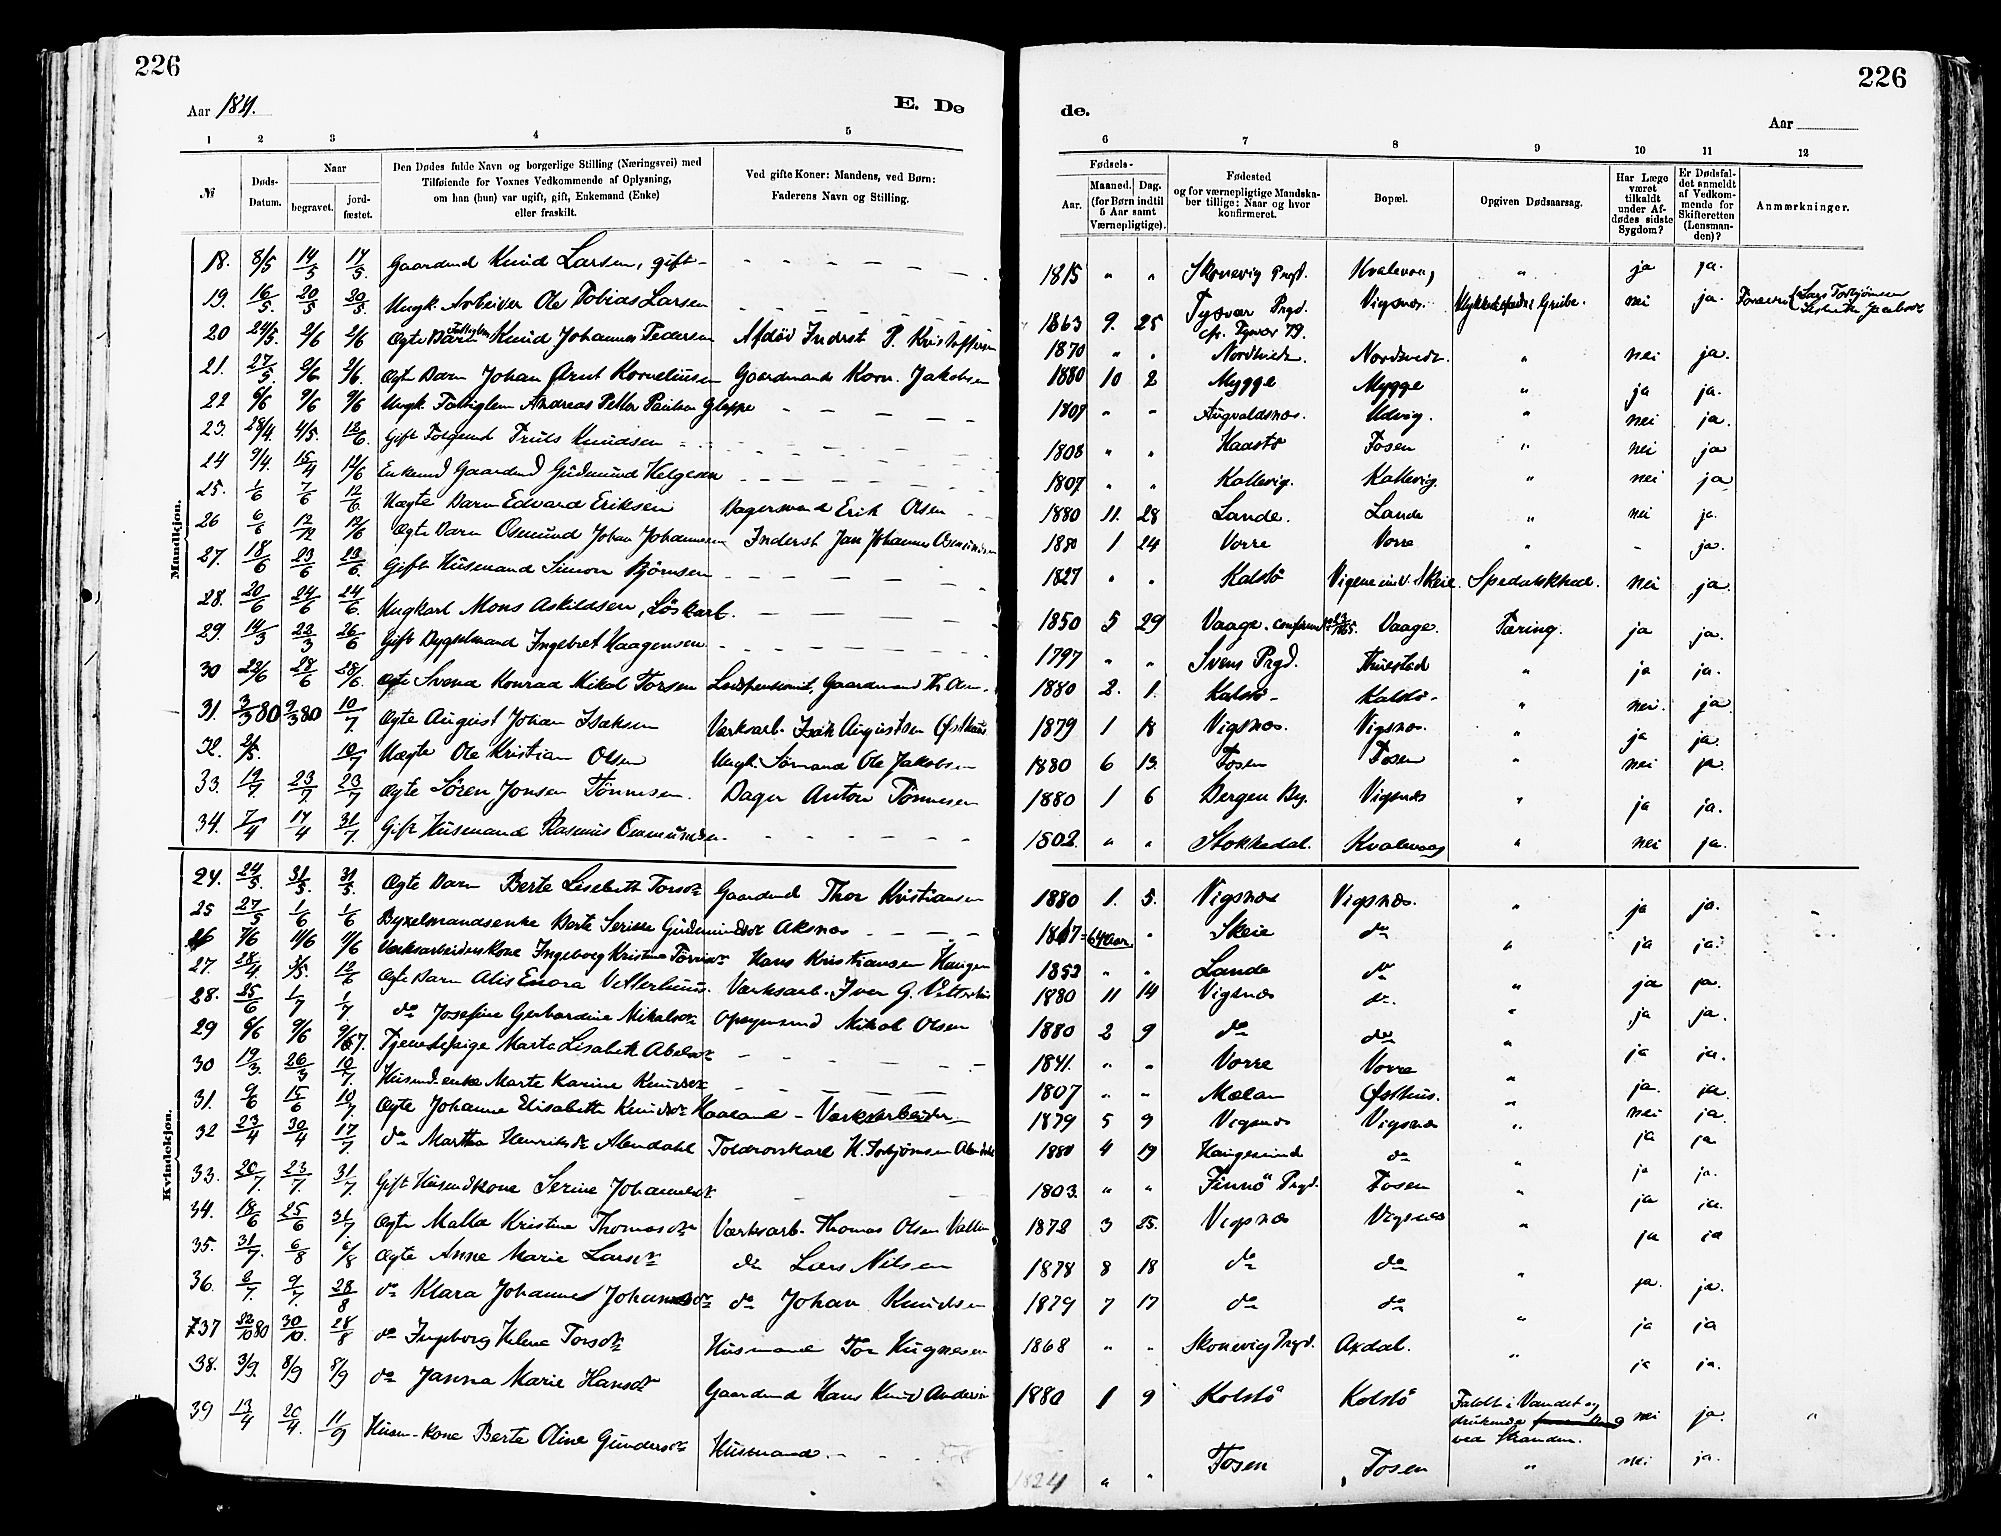 226
226
Aar 1881.
E. Dø
de.
Aar
1 2 3 4 5 6 7 8 9 10 11 12
№
Døds-Datum.
Naar
begravet.
jord-fæstet.
Den Dødes fulde Navn og borgerlige Stilling (Næringsvei) med
Tilføiende for Voxnes Vedkommende af Oplysning,
om han (hun) var ugift, gift, Enkemand (Enke)
eller fraskilt.
Ved gifte Koner: Mandens, ved Børn:
Faderens Navn og Stilling.
Fødsels-
Aar.
Maaned. Dag.
(for Børn indtil
5 Aar samt
Værnepligtige).
Fødested
og for værnepligtige Mandska-
ber tillige: Naar og hvor
konfirmeret.
Bopæl.
Opgiven Dødsaarsag.
Har Læge
været
tilkaldt
under Af-
dødes sidste
Sygdom?
Er Dødsfal-
det anmeldt
af Vedkom-
mende for
Skifteretten
(Lensman-
den)?
Anmærkninger.
Mandkjøn.
18. 8/5 14/5 17/5. Gaardmd Knud Larsen, gift 1815 " " Skonevig Prgd. Kvalevaag " ja ja.
19. 16/5. 20/5 20/5. Ungk. Arbeider Ole Tobias Larsen 1863 9. 25 Tysvær Prgd. Vigsnæs. Grube. nei ja.
20 24/5. 2/6 2/6 Ægte Barn Knud Johannes Pedersen Afdød Inderst P. Kristoffersen 1870 " " Nordtveit. Nordtveit. " nei ja.
21. 27/5 2/6 2/6. Ægte Barn Johan Ørnt Kornelius­sen Gaardmands Korn. Jakobsen 1880 10 2 Mygge Mygge " ja ja.
22 6/6 9/6 9/6 Ungk. Fattiglem Andreas Petter Paulsen Gloppe 1809 " " Augvaldsnæs. Udvig. " nei ja.
23. 28/4. 4/5. 12/6. Gift Føderaad Truls Knudsen 1808 " " Haastø Fosen " nei ja
24 9/4. 15/4 12/6 Enkemd Gaardmd Gudmund Helgesen 1807 " " Kallevig. Kallevig. " nei ja
25. 1/6 7/6 12/6. Uægte Barn Edvard Eriksen Erik Olsen 1880 11. 28 Lande. Lande " nei ja.
26 6/6 12/6 Ægte Barn Osmund Johan Johannesen Inderst Jan Johannes Osmundsen 1880 1 24 Vorre Vorre " - ja.
27. 18/6 23/6 23/6. Gift Husmand Simon Bjørnsen 1827 " " Kalstø Vigene ind. Skeie. Spedalskhed. nei ja.
28. 20/6 24/6 24/6. Ungkarl Mons Askildsen, Løskarl. 1850 5 29 Vaage. Vaage. Tæring. ja ja.
29. 14/3 22/3 26/6 Gift Bygselmand Ingebret Haagensen 1797 " " Svens Prgd. " ja ja.
30 22/6 28/6 28/6. Ægte Svend Konrad Mikal Torsen 1880 2. 1. Kalstø Kalstø " nei. ja
31. 3/3 80 9/3 80 10/7. Ægte August Johan Isaksen Værksarb. Isak Augustsen Østhuus 1879 1 18 Vigsnæs. Vigsnæs. " ja ja.
32. 10/7 Uægte Ole Kristian Olsen Ungk. Sømand Ole Jakobsen 1880 6 13. Fosen Fosen " nei ja.
33. 19/7 23/7. 23/7 Ægte Søren Jonsen Tønnesen. Bager Anton Tønnesen 1880 1 6 Bergen By. Vigsnæs " ja ja.
34. 7/4 17/4 31/7. Gift Husmand Rasmus Ommundsen 1802. " " Stokkedal. Kvalevaag " nei ja.
Kvindekjøn.
24. 24/5. 31/5. 31/5. Ægte Barn Berte Lisebeth Torsdtr Gaardmd Thor Kristiansen 1880 1. 5. Vigsnæs Vigsnæs. " ja ja.
25 27/5 1/6 1/6 Byxelmandsenke Berte Serine Gudmundsdtr Aksnæs 1817 64 Aar " Skeie do " ja ja.
26 7/6 11/6 11/6 Værksarbeiders Kone Ingeborg Kristine Hans Kristiansen Haugen 1852 " " Lande do " ja ja.
27. 28/4 3/5. 12/6 Ægte Barn Alis Enora Vetterhuus. Værksarb. Iver G. 1880 11 14 Vigsnæs do. " ja ja.
28. 25/6 1/7 1/7. do Josefine Gerhardine Mikalsdtr Opsynsmd Mikal Olsen 1880 2 9 do do " ja ja.
29 6/6 9/6 Tjenestepige Marta Lisabeth Abelsdtr 1841. " " Vorre Vorre " ja ja.
30 19/3. 26/3 10/7. Husmd.enke Marte Karine Knudsdtr 1807 " " Mælan Østhus. " ja. ja.
31. 9/6 15/6 10/7. Ægte Johanne Elisabeth Knudsdtr Haaland - Værksarbeider 1879 5 9 Vigsnæs Vigsnæs " nei ja.
32 23/4 30/4 17/7. do Martha Henriksdtr Alendahl Toldroerskarl H. Torbjørnsen 1880 4 19 Haugesund do " ja ja
33. 20/7. 23/7. 31/7. Gift Husmdkone Serine Johannesdtr 1803. " " Finnö Prgd. Fosen " ja ja.
34. 18/6 25/6 31/7. Ægte Malla Kristine Thomasdtr Værksarb. Thomas Olsen 1872 3 25. Vigsnæs Vigsnæs " ja ja.
35. 31/7. 6/8 6/8 Ægte Anne Marie Larsdtr do Lars Nilsen 1878 8 18 do do " ja ja
36. 2/7. 9/7. 28/8 do Klara Johannes Johansdtr do Johan Knudsen 1879 7 17 do do " ja. ja.
37 80 30/10. 28/8 do Ingeborg Helene Torsdtr Husmand Tor 1868 " " Skonevig Prgd. Axdal. " ja ja
38. 3/9. 8/9 8/9 do Janna Marie Hansdtr Gaardmd Hans Knud Andersen 1880 1 9 Kolstö Kolstö Faldt i Vandet og druknede ved Stranden. nei ja. "
39 13/4 20/4. 11/9 Husm.kone Berte Oline Gundersdtr Husmand. 1824 " " Fosen Fosen " nei ja.